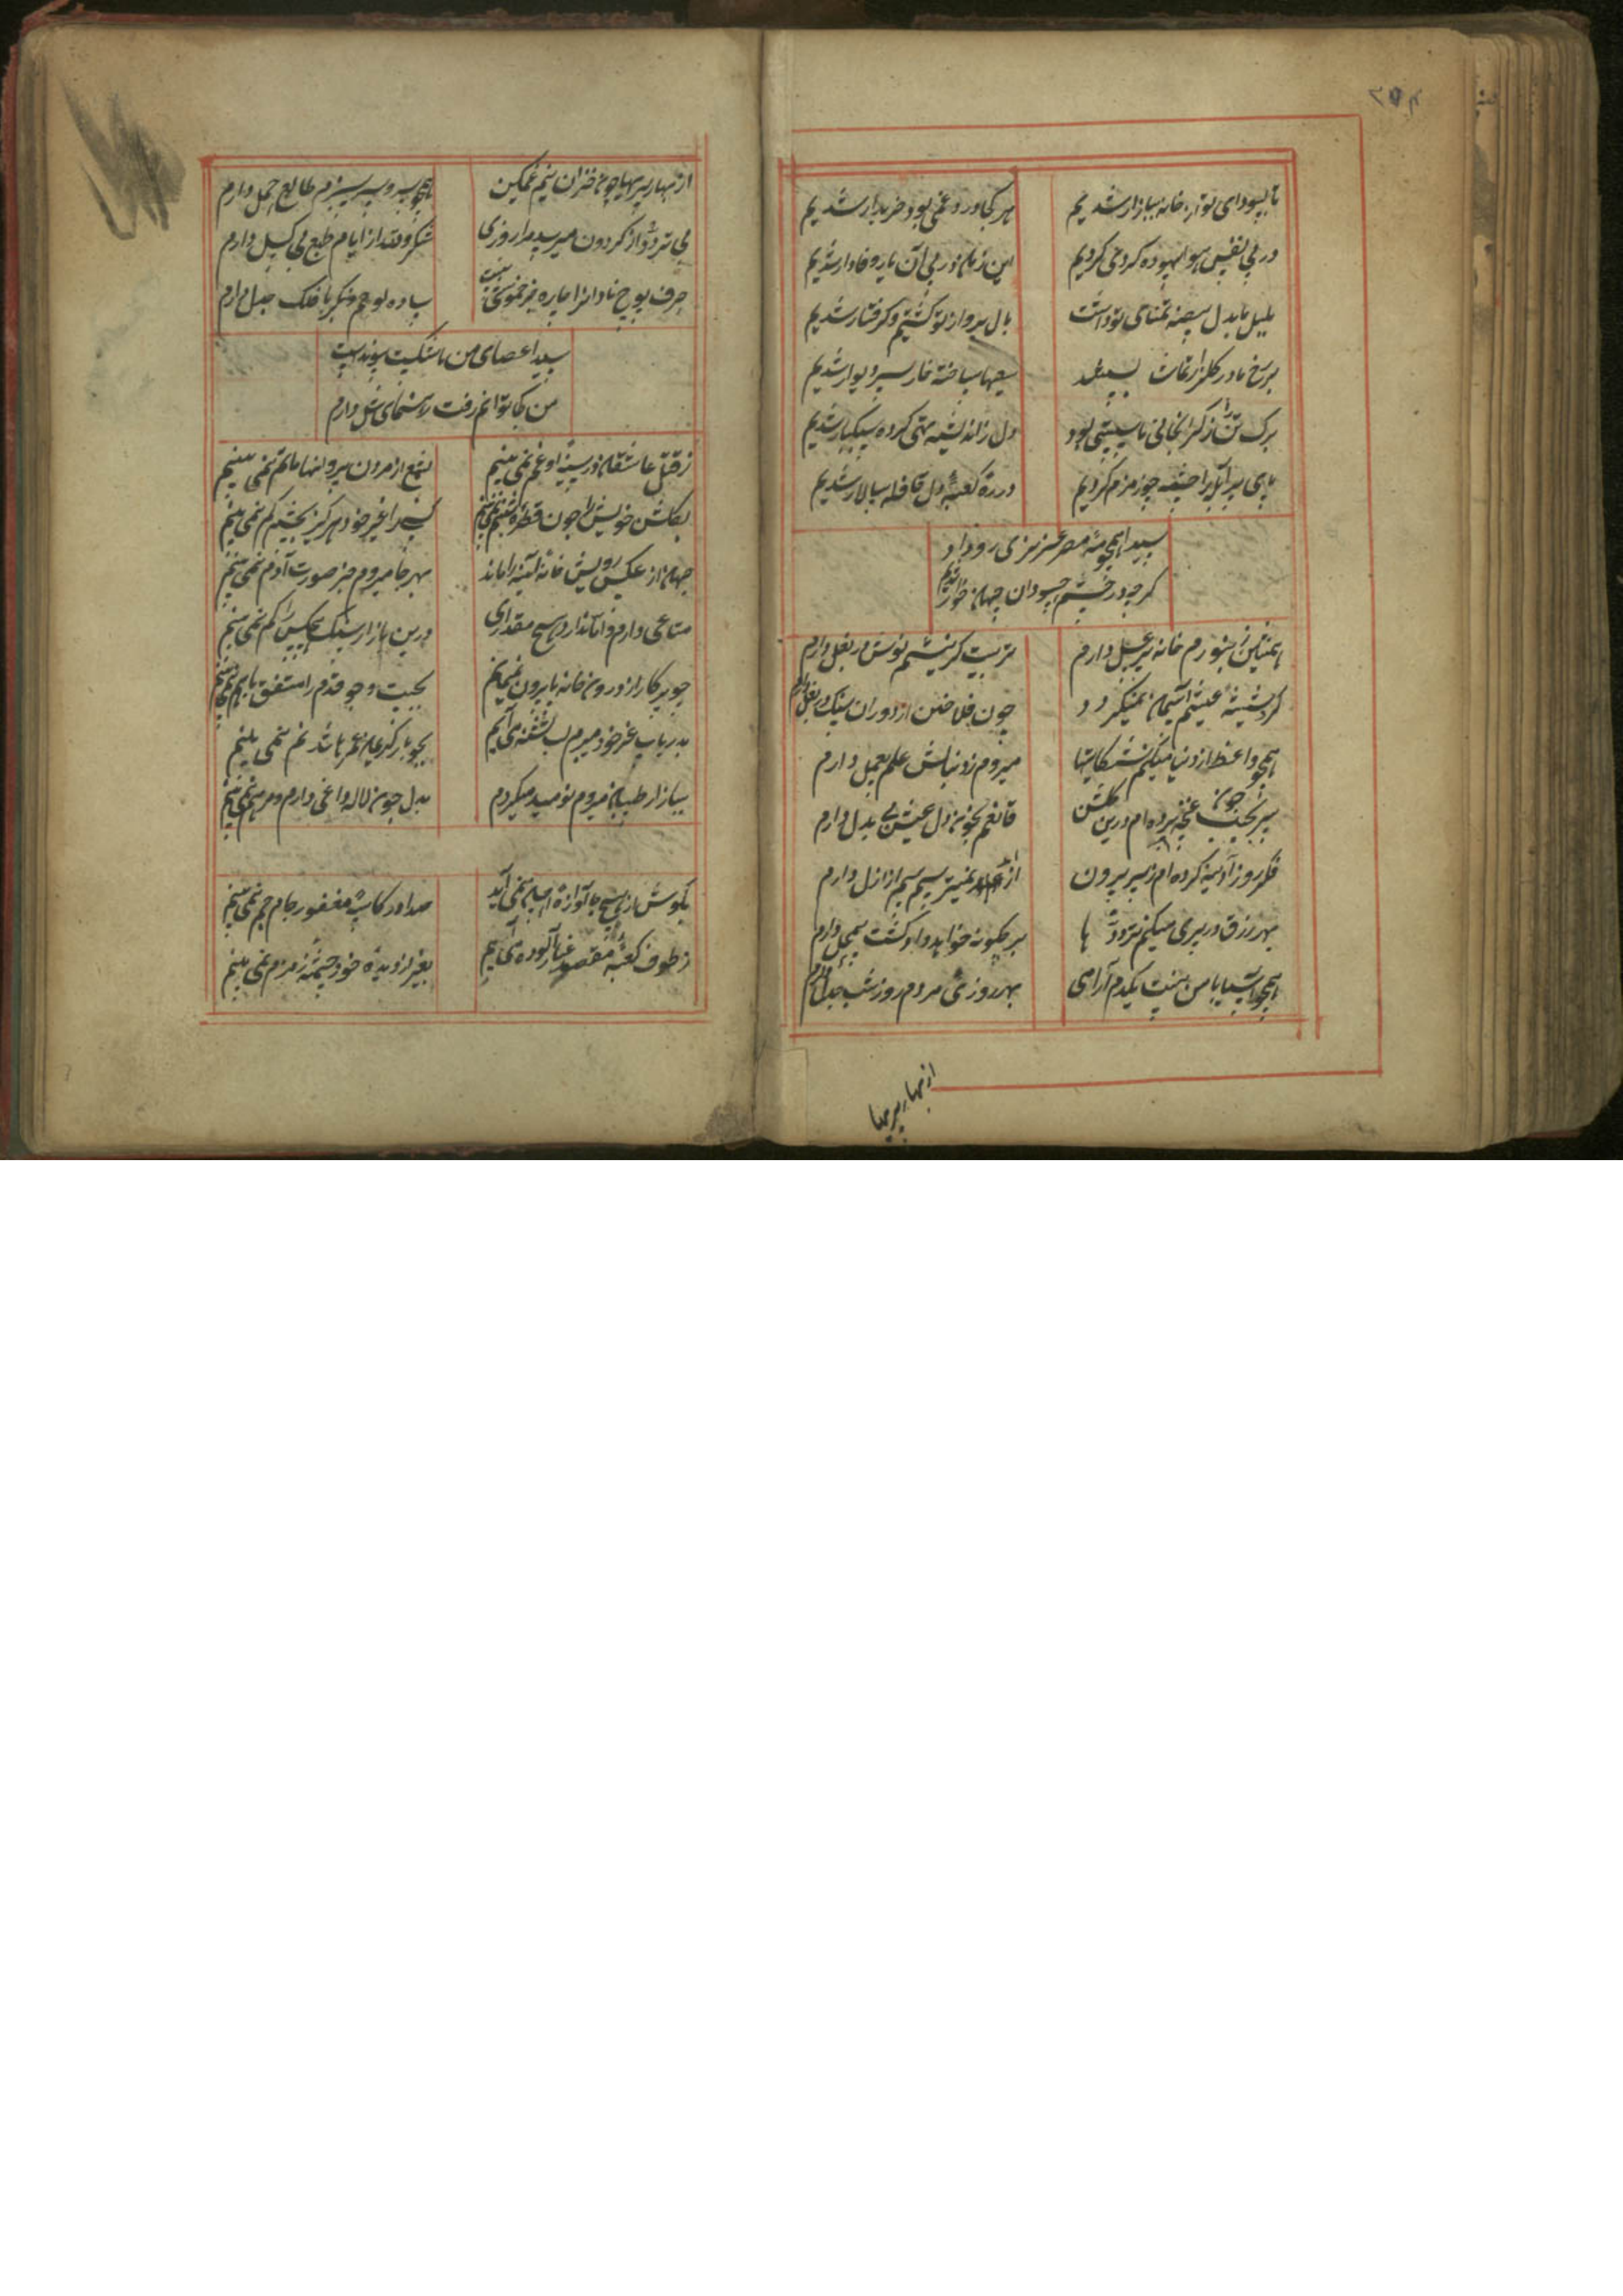 ۳۵۴
تا بسودای تو از خانه ببازار شدیم
هر کجا درد و غمی بود خریدار شدیم
در پی نفس و هوا بیهوده کردی کردیم
این زمان در پی آن یار وفادار شدیم
بلبل ما بدل بیضه تمنای تو داشت
بال پرواز تو کشتیم و گرفتار شدیم
بر رخ ما در گلزار
خار سر دیوار شدیم
برک تن را ز گران جانی ما پستی بود
دل ز اندیشه تهی کرده سبکبار شدیم
پای پر آبله را چشمه چو زمزم کردیم
در ره کعبه دل قافله سالار شدیم
سیدا همچو مه مصر عزیزی رو داد
کرچه در چشم حسودان جهان خوار شدیم
همنشین زنبورم خانه پر عسل دارم
تربیت کر نیشم نوش در بغل دارم
کرد شیشه عیشم آسیمان نمیکردد
چون فلاخن از دوران سنک در بغل دارم
همچو واعظ از دنیا میکنم شکایتها
میروم ز دنبالش علم بی عمل دارم
سر بجیب چون غنچه برده ام درین کلشن
قانعم بخون دل عیش بی بدل دارم
فکر روز آدینه کرده ام ز سر بیرون
از ازل دارم
بهر رزق در پیری میکنم ترددها
بر چکونه خواهد داد کشت بی محل دارم
همچو آسیا با من نیست یکدم آرامی
بهر روزی مردم روز و شب جدل دارم
از بهار پیریها
از بهار پیریها چون خزان نیم غمکین
همچو سرو سرسبزم طالع حمل دارم
بی تردد از کردون میرسد مرا روزی
شکر والله از ایام طبع بی کسل دارم
حرف پوچ نادانرا چاره جز خموشی نیست
ساده لوحم و فکر با فلک جدل دارم
سیدا عصای من با شکست پیوند است
من کجا توانم رفت رهنمای شل دارم
ز قتل عاشقان در سینه او غم نمی بینم
بشمع از مردن پروانها ماتم نمی بینم
بکلشن خویش را چون قطره شبنم نمی بینم
کسی را غیر خود هرکز بچشم کم نمی بینم
جهان از عکس رویش خانه آیینه را ماند
بهر جا میروم جز صورت آدم نمی بینم
متاعی دارم و اما ندارد هیچ مقداری
درین بازار سنک هیچکس را کم نمی بینم
چو پرکار از درون خانه پا بیرون نمی مانم
بجست و جو قدم را متفق با هم نمی بینم
بدریا بی غرض خود میروم لب تشنه می آیم
بجو بار کریمان غیر باشد نم نمی بینم
ببازار طبیبان میروم نومید میکردم
بدل چون لاله داغی دارم و مرهم نمی بینم
بکوش از هیچ جا آوازه احسان نمی آید
صدا در کاسه فغفور و جام جم نمی بینم
ز طوف کعبه مقصود غبار آلوده می آیم
بغیر از دیده خود چشمه زمزم نمی بینم